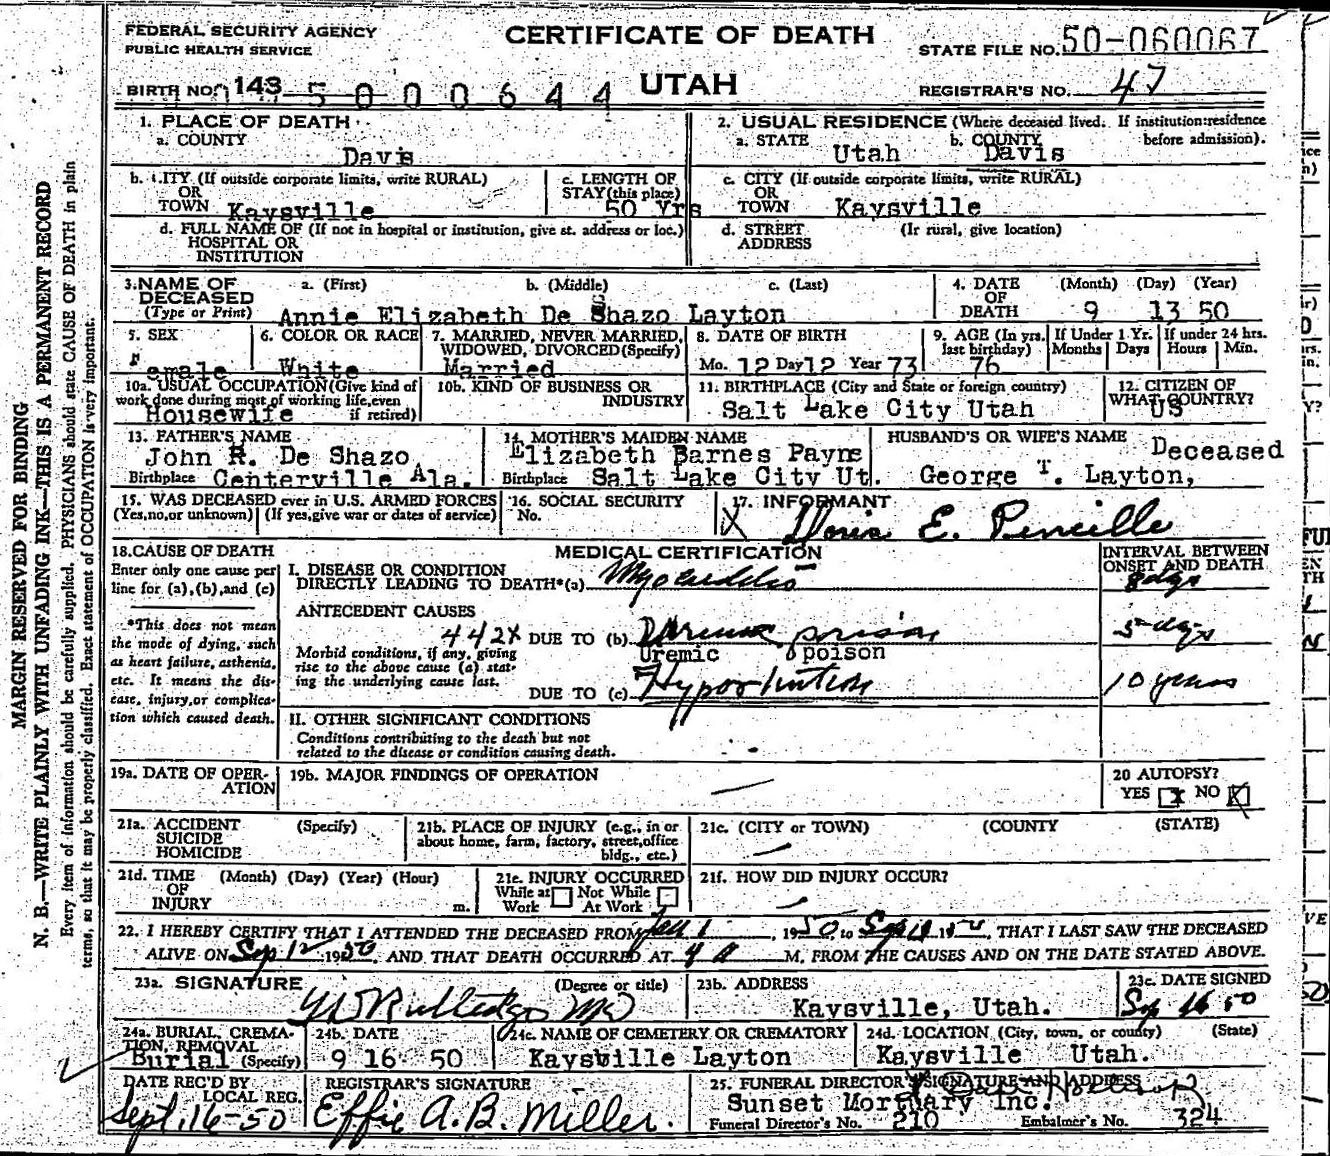 FEDERAL SECURITY AGENCY
PUBLIC HEALTH SERVICE
CERTIFICATE OF DEATH
STATE FILE NO. 50-060067
BIRTH NO. 143 5000644
UTAH
REGISTRAR'S NO. 47
1. PLACE OF DEATH
a. COUNTY
Davis
2. USUAL RESIDENCE (Where deceased lived. If institution: residence before admission).
a. STATE Utah b. COUNTY Davis
b. CITY (If outside corporate limits, write RURAL)
OR
TOWN Kaysville
c. LENGTH OF
STAY (this place)
50 Yrs
c. CITY (If outside corporate limits, write RURAL)
OR
TOWN Kaysville
d. FULL NAME OF (If not in hospital or institution, give st. address or loc.)
HOSPITAL OR
INSTITUTION
d. STREET (If rural, give location)
ADDRESS
3. NAME OF DECEASED
(Type or Print)
a. (First) b. (Middle) c. (Last)
Annie Elizabeth De Shazo Layton
4. DATE OF DEATH
(Month) (Day) (Year)
9 13 50
5. SEX
Female
6. COLOR OR RACE
White
7. MARRIED, NEVER MARRIED,
WIDOWED, DIVORCED (Specify)
Married
8. DATE OF BIRTH
Mo. 12 Day 12 Year 73
9. AGE (In yrs. last birthday)
76
If Under 1 Yr. Months Days
If under 24 hrs. Hours Min.
10a. USUAL OCCUPATION (Give kind of
work done during most of working life, even
if retired)
Housewife
10b. KIND OF BUSINESS OR
INDUSTRY
11. BIRTHPLACE (City and State or foreign country)
Salt Lake City Utah
12. CITIZEN OF
WHAT COUNTRY?
US
13. FATHER'S NAME
John R. De Shazo
Birthplace Centerville Ala.
14. MOTHER'S MAIDEN NAME
Elizabeth Barnes Payne
Birthplace Salt Lake City Ut.
HUSBAND'S OR WIFE'S NAME Deceased
George T. Layton,
15. WAS DECEASED ever in U.S. ARMED FORCES
(Yes, no, or unknown) (If yes, give war or dates of service)
16. SOCIAL SECURITY
No.
17. INFORMANT
X Doris E.
18. CAUSE OF DEATH
Enter only one cause per
line for (a), (b), and (c)
*This does not mean
the mode of dying, such
as heart failure, asthenia,
etc. It means the dis-
ease, injury, or complica-
tion which caused death.
MEDICAL CERTIFICATION
INTERVAL BETWEEN
ONSET AND DEATH
I. DISEASE OR CONDITION
DIRECTLY LEADING TO DEATH*(a) Myocarditis
8 dys
ANTECEDENT CAUSES
442X DUE TO (b) Uremic poison
5 dys
Uremic poison
Morbid conditions, if any, giving
rise to the above cause (a) stat-
ing the underlying cause last.
DUE TO (c) Hypertention
10 years
II. OTHER SIGNIFICANT CONDITIONS
Conditions contributing to the death but not
related to the disease or condition causing death.
19a. DATE OF OPER-
ATION
19b. MAJOR FINDINGS OF OPERATION
20 AUTOPSY?
YES NO
21a. ACCIDENT (Specify)
SUICIDE
HOMICIDE
21b. PLACE OF INJURY (e.g., in or
about home, farm, factory, street, office
bldg., etc.)
21c. (CITY or TOWN) (COUNTY (STATE)
21d. TIME (Month) (Day) (Year) (Hour)
OF
INJURY m.
21e. INJURY OCCURRED
While at Work Not While At Work
21f. HOW DID INJURY OCCUR?
22. I HEREBY CERTIFY THAT I ATTENDED THE DECEASED FROM 1, 1950, to Sep 1950, THAT I LAST SAW THE DECEASED
ALIVE ON Sep 12 1950, AND THAT DEATH OCCURRED AT 4 A M, FROM THE CAUSES AND ON THE DATE STATED ABOVE.
23a. SIGNATURE (Degree or title)
Rutledge MD
23b. ADDRESS
Kaysville, Utah.
23c. DATE SIGNED
Sep 16 50
24a. BURIAL, CREMA-
TION, REMOVAL
Burial (Specify)
24b. DATE
9 16 50
24c. NAME OF CEMETERY OR CREMATORY
Kaysville Layton
24d. LOCATION (City, town, or county) (State)
Kaysville Utah.
DATE REC'D BY
LOCAL REG.
Sept. 16-50
REGISTRAR'S SIGNATURE
Effie A. B. Miller.
25. FUNERAL DIRECTOR'S SIGNATURE AND ADDRESS
Sunset Mortuary Inc.
Funeral Director's No. 210 Embalmer's No. 324
MARGIN RESERVED FOR BINDING
N. B.—WRITE PLAINLY WITH UNFADING INK—THIS IS A PERMANENT RECORD
Every item of information should be carefully supplied. PHYSICIANS should state CAUSE OF DEATH in plain
terms, so that it may be properly classified. Exact statement of OCCUPATION is very important.